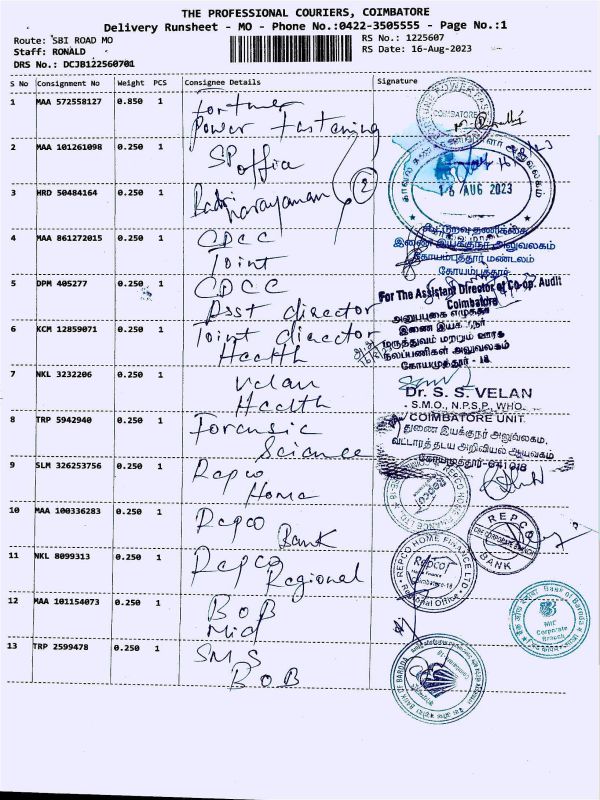 THE PROFESSIONAL COURIERS, COIMBATORE
Delivery Runsheet - MO - Phone No.:0422-3505555 - Page No.:1
Route: SBI ROAD MO
RS No.: 1225607
Staff: RONALD
RS Date: 16-Aug-2023
DRS No.: DCJB122560701
S No Consignment No Weight PCS Consignee Details Signature
1 MAA 572558127 0.850 1 Fortune
Power Fastening
COIMBATORE
2 MAA 101261098 0.250 1 SP
office
16 AUG 2023
3 HRD 50484164 0.250 1 Badri
Narayanan
2
கூட்டுறவு தணிக்கை
4 MAA 861272015 0.250 1 CDCC
Joint
இணை இயக்குநர் அலுவலகம்
கோயம்புத்தூர் மண்டலம்
கோயம்புத்தூர்
5 DPM 405277 0.250 1 CDCC
Asst director
For The Assistant Director of Co-op. Audit
Coimbatore
6 KCM 12859071 0.250 1 Joint director
Health
இணை இயக்குநர்
மருத்துவம் மற்றும் ஊரக
நலப்பணிகள் அலுவலகம்
கோயமுத்தூர் - 18
7 NKL 3232206 0.250 1 Velan
Health
Dr. S. S. VELAN
- S.M.O., N.P.S.P., WHO.
COIMBATORE UNIT.
8 TRP 5942940 0.250 1 Forensic
Science
துணை இயக்குநர் அலுவலகம்,
வட்டாரத் தடய அறிவியல் ஆய்வகம்
கோயமுத்தூர்-641018
9 SLM 326253756 0.250 1 Repco
Home
REPCO
10 MAA 100336283 0.250 1 Repco
Bank
REPCO
BANK
11 NKL 8099313 0.250 1 Repco
Regional
REPCO HOME FINANCE LTD
Repco
Coimbatore-18
Regional Office
12 MAA 101154073 0.250 1 BOB
Mid
Bank of Baroda
Corporate
Branch
13 TRP 2599478 0.250 1 SMS
BOB
BANK OF BARODA